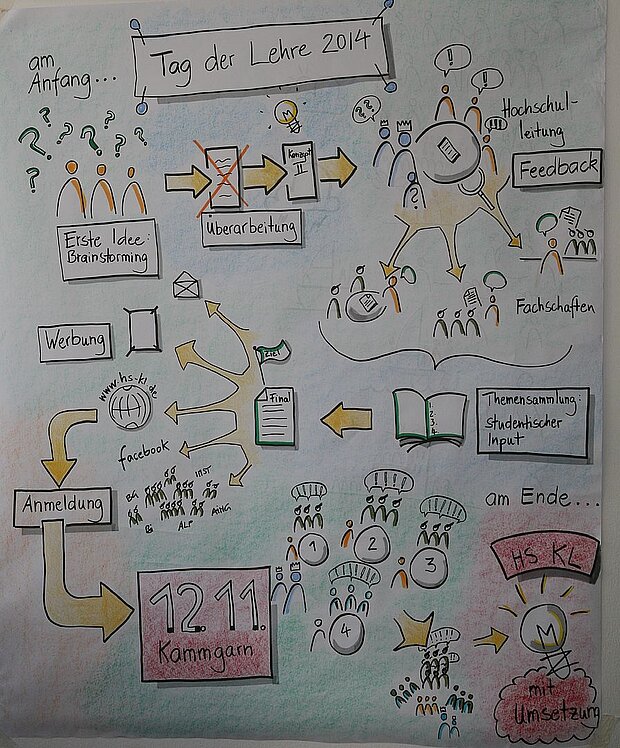 Tag der Lehre 2014
am
Anfang...
? ? ? ? ? ?
Erste Idee:
Brainstorming
Konzept
II
Überarbeitung
? ?
!
!
!!!
?
Hochschul-
leitung
Feedback
Fachschaften
Themensammlung:
studentischer
Input
1.
2.
3.
4.
Final
ZIEL
Werbung
www.hs-kl.de
facebook
BG
INST
AING
ALP
BI
Anmeldung
12. 11.
Kammgarn
1
2
3
4
am Ende...
HS KL
mit
Umsetzung